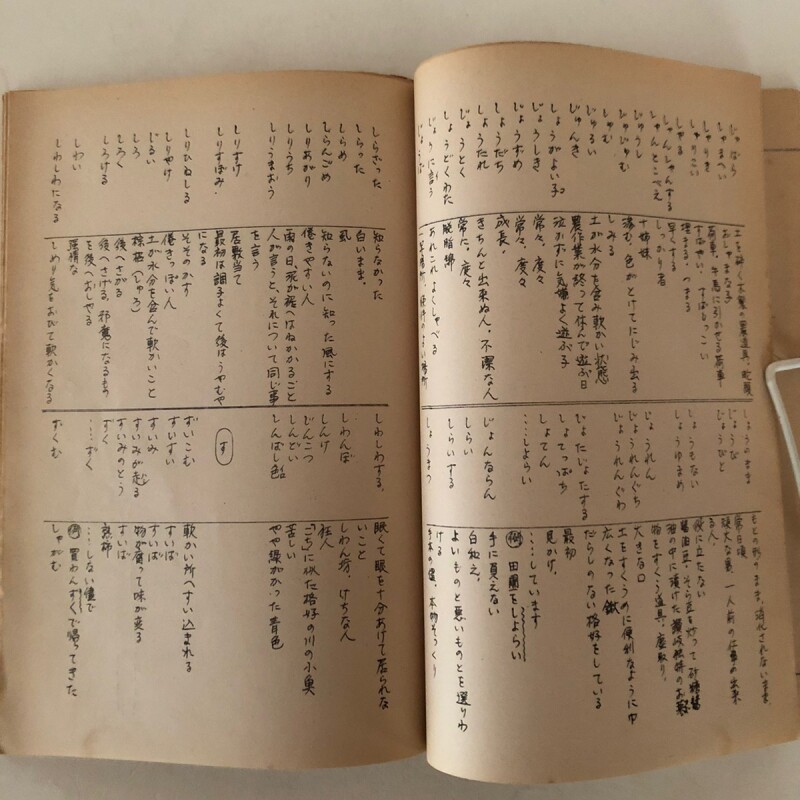 しゃりき　荷車、牛馬に引かせる荷車
しゃりこい
しゃる　埋まる、つまる
しゃんしゃんする　早くする
しゃんとこべえ　しっかり者
じゅうし　十姉妹
じゅじゅむ　滲む、色がとけてにじみ出る
しゅむ　しみる
じゅるい　土が水分を含み軟かい状態
じゅんき　農作業が終って休んで遊ぶ日
しょうがよい子　泣かずに気嫌よく遊ぶ子
じょうしき　常々、度々
じょうずめ　常々、度々
しょうだち　成長。
しょうたれ　きちんと出来ぬ人、不潔な人
じょうとく　常に、度々
しょうどくわた　脱脂綿
じょうに言う　あれこれよくしゃべる
しょうのまま　もとの形のまま、消化されないまま
じょうび　常日頃
じょうびと　一人前の仕事の出来
る人。
しょうもない　役に立たない
しょうゆまめ
物をすくう道具、塵取り。
じょうれん
じょうれんぐち　大きな口
じょうれんぐわ　土をすくうのに便利なように巾
広くなった鍬
じょたじょたする　だらしのない格好をしている
しょてっぱち　最初
しょてん　見かけ。
…しよらい　…しています
例　田圃をしよらい
じょんならん　手に負えない
しらい　白和え。
しらいする　よいものと悪いものとを選りわ
ける
しょうまつ
しらざった　知らなかった
しらった　白いまま。
しらめ　虱
しらんごめ　知らないのに知った風にする
しりあがり　倦きやすい人
しりうち　雨の日、泥が裾へはねかかること
しりうまおう　人が言うと、それについて同じ事
を言う
しりすけ　居敷当て
しりすぼみ．　最初は調子よくて後はうやむや
になる
しりひねしる　そそのかす
しりやけ　倦きっぽい人
じるい　土が水分を含んで軟かいこと
しろ　棕梠（しゅろ）
しろく　後へさがる
しろける　後へさげる、邪魔になるもの
を後へおしやる
しわい　強情な
しわしわになる　しめり気をおびて軟かくなる
しわしわする．　眠くて眼を十分あけて居られな
いこと
しわんぼ　しわん坊、けちな人
しんけ　狂人
じんこつ　「ごち」に似た格好の川の小魚
しんどい　苦しい
しんばし色　やや緑がかった青色
す
ずいこむ　軟かい所へすい込まれる
すいすい　すいば
すいみ　すいば
すいみが起る　物が腐って味が変る
すいみのとう　すいば
ずく　熟柿
…ずく　…しない儘で
例　買わんずくで帰ってきた
ずくむ　しゃがむ